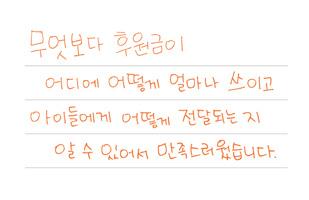 무엇보다 후원금이
어디에 어떻게 얼마나 쓰이고
아이들에게 어떻게 전달되는 지
알 수 있어서 만족스러웠습니다.